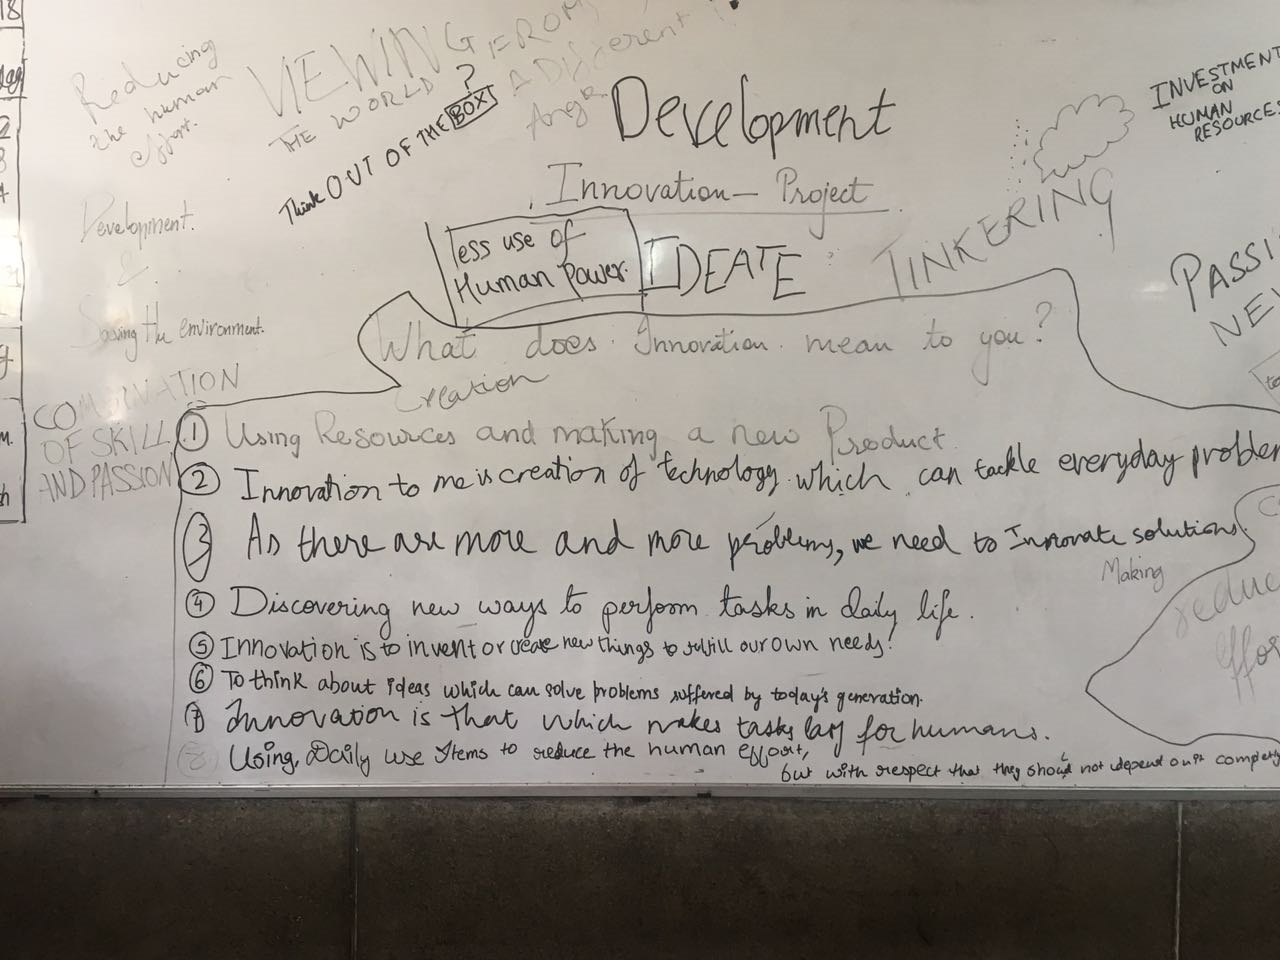 18
Reducing
the human
effort.
VIEWING FROM
THE WORLD ? A Different
Angle
Think OUT OF THE BOX
Development
INVESTMENT
ON
HUMAN
RESOURCE.
Innovation - Project
Development.
&
Saving the environment.
less use of
Human Power.
IDEATE
TINKERING
PASSI
NEW
What does Innovation mean to you?
Creation
OF SKILL
AND PASSION
① Using Resources and making a new Product.
② Innovation to me is creation of technology which can tackle everyday problem
③ As there are more and more problems, we need to Innovate solutions.
Making
④ Discovering new ways to perform tasks in daily life.
⑤ Innovation is to invent or create new things to fulfill our own needs!
⑥ To think about ideas which can solve problems suffered by today's generation.
⑦ Innovation is that which makes tasks for humans.
⑧ Using Daily use Items to reduce the human effort,
but with respect that they should not depend on it completly
reduce
effor